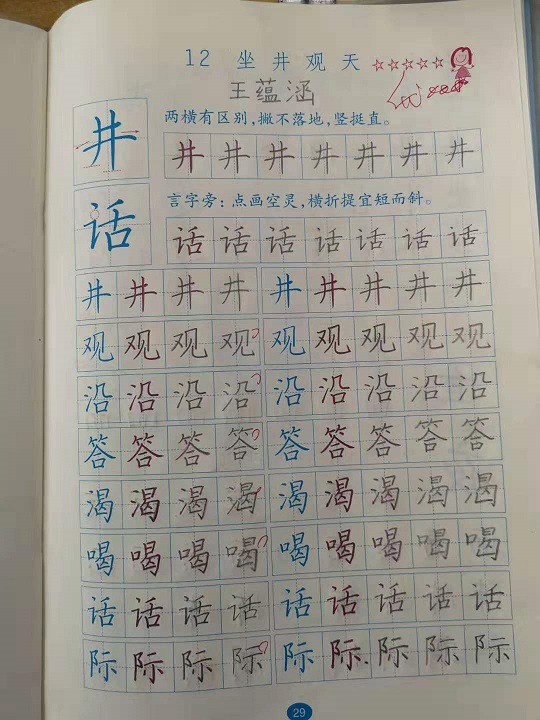 12 坐井观天
王蕴涵
井
两横有区别,撇不落地,竖挺直。
井井井井井井井
话
言字旁:点画空灵,横折提宜短而斜。
话话话话话话话
井井井井 井井井井井
观观观观 观观观观观
沿沿沿沿 沿沿沿沿沿
答答答答 答答答答答
渴渴渴渴 渴渴渴渴渴
喝喝喝喝 喝喝喝喝喝
话话话话 话话话话话
际际际际 际际际际际
29